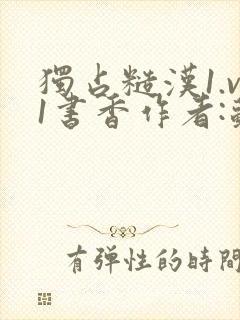 獨占糙漢1.v
1書香作者:
有弹性的時間